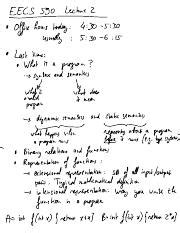 EECS 590 Lecture 2
• Office hours today: 4:30 - 5:30
usually : 5:30 - 6:15
• Last time:
• What is a program?
→ syntax and semantics
what is would a program
what does it mean
→ dynamic semantics and static semantics
what happens when a program runs
properties about a program before it runs (e.g. type system)
• Binary relations and functions
• Representation of functions:
→ extensional representation: set of all input/output pairs. Typical mathematical definition
→ intensional representation: Way you write the function in a program
A = int f(int x) {return x+x} B = int f(int x) {return 2*x}